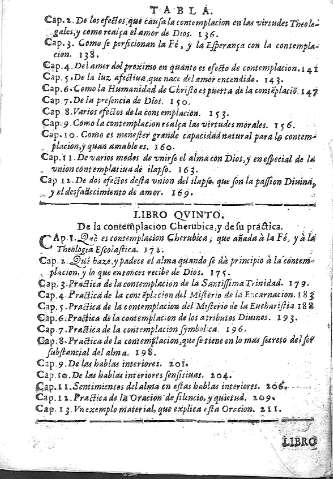 TABLA.
Cap. 2. De los efectos, que causa la contemplacion en las virtudes Theolo-
gales, y como realça el amor de Dios. 136.
Cap. 3. Como se perficionan la Fé, y la Esperança con la contempla-
cion. 138.
Cap. 4. Del amor del proximo en quanto es efecto de contemplacion. 141
Cap. 5. De la luz afectiua, que nace del amor encendido. 143.
Cap. 6. Como la Humanidad de Christo es puerta de la contẽplaciõ 147
Cap. 7. De la presencia de Dios. 150.
Cap. 8. Varios efectos de la contemplacion. 153.
Cap. 9. Como la contemplacion realça las virtudes morales. 156.
Cap. 10. Como es menester grande capacidad natural para la contem-
placion, y quan amable es. 160.
Cap. 11. De varios modos de vnirse el alma con Dios, y en especial de la
vnion contemplatiua de ilapso. 163.
Cap 12. De dos efectos desta vnion del ilapso, que son la passion Diuina,
y el desfallecimiento de amor. 169.
LIBRO QVINTO,
De la contemplacion Cherubica, y de su practica.
Cap. 1. Què es contemplacion Cherubica, que añada à la Fé, y à la
Theologia Escolastica. 172.
Cap. 2. Què haze, y padece el alma quando se dà principio à la contem-
placion, y lo que entonces recibe de Dios. 175.
Cap. 3. Practica de la contemplacion de la Santissima Trinidad. 179.
Cap. 4. Practica de la contẽplacion del Misterio de la Encarnacion. 183
Cap. 5. Practica de la contemplacion del Misterio de la Eucharistia 188
Cap. 6. Practica de la contemplacion de los atributos Diuinos. 193.
Cap. 7. Practica de la contemplacion symbolica. 196.
Cap. 8. Practica de la contemplacion, que se tiene en lo mas secreto del ser
substancial del alma. 198.
Cap. 9. De las hablas interiores. 201.
Cap. 10. De las hablas interiores sensitiuas. 204.
Cap. 11. Sentimientos del alma en estas hablas interiores. 206.
Cap. 12. Practica de la Oracion de silencio, y quietud. 209.
Cap. 13. Vn exemplo material, que explica esta Oracion. 211.
LIBRO